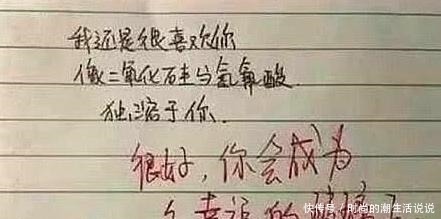 我还是很喜欢你
像二氧化硅与氢氟酸
独溶于你.
很好,你会成为
幸福的
快传号/时尚的潮生活说说